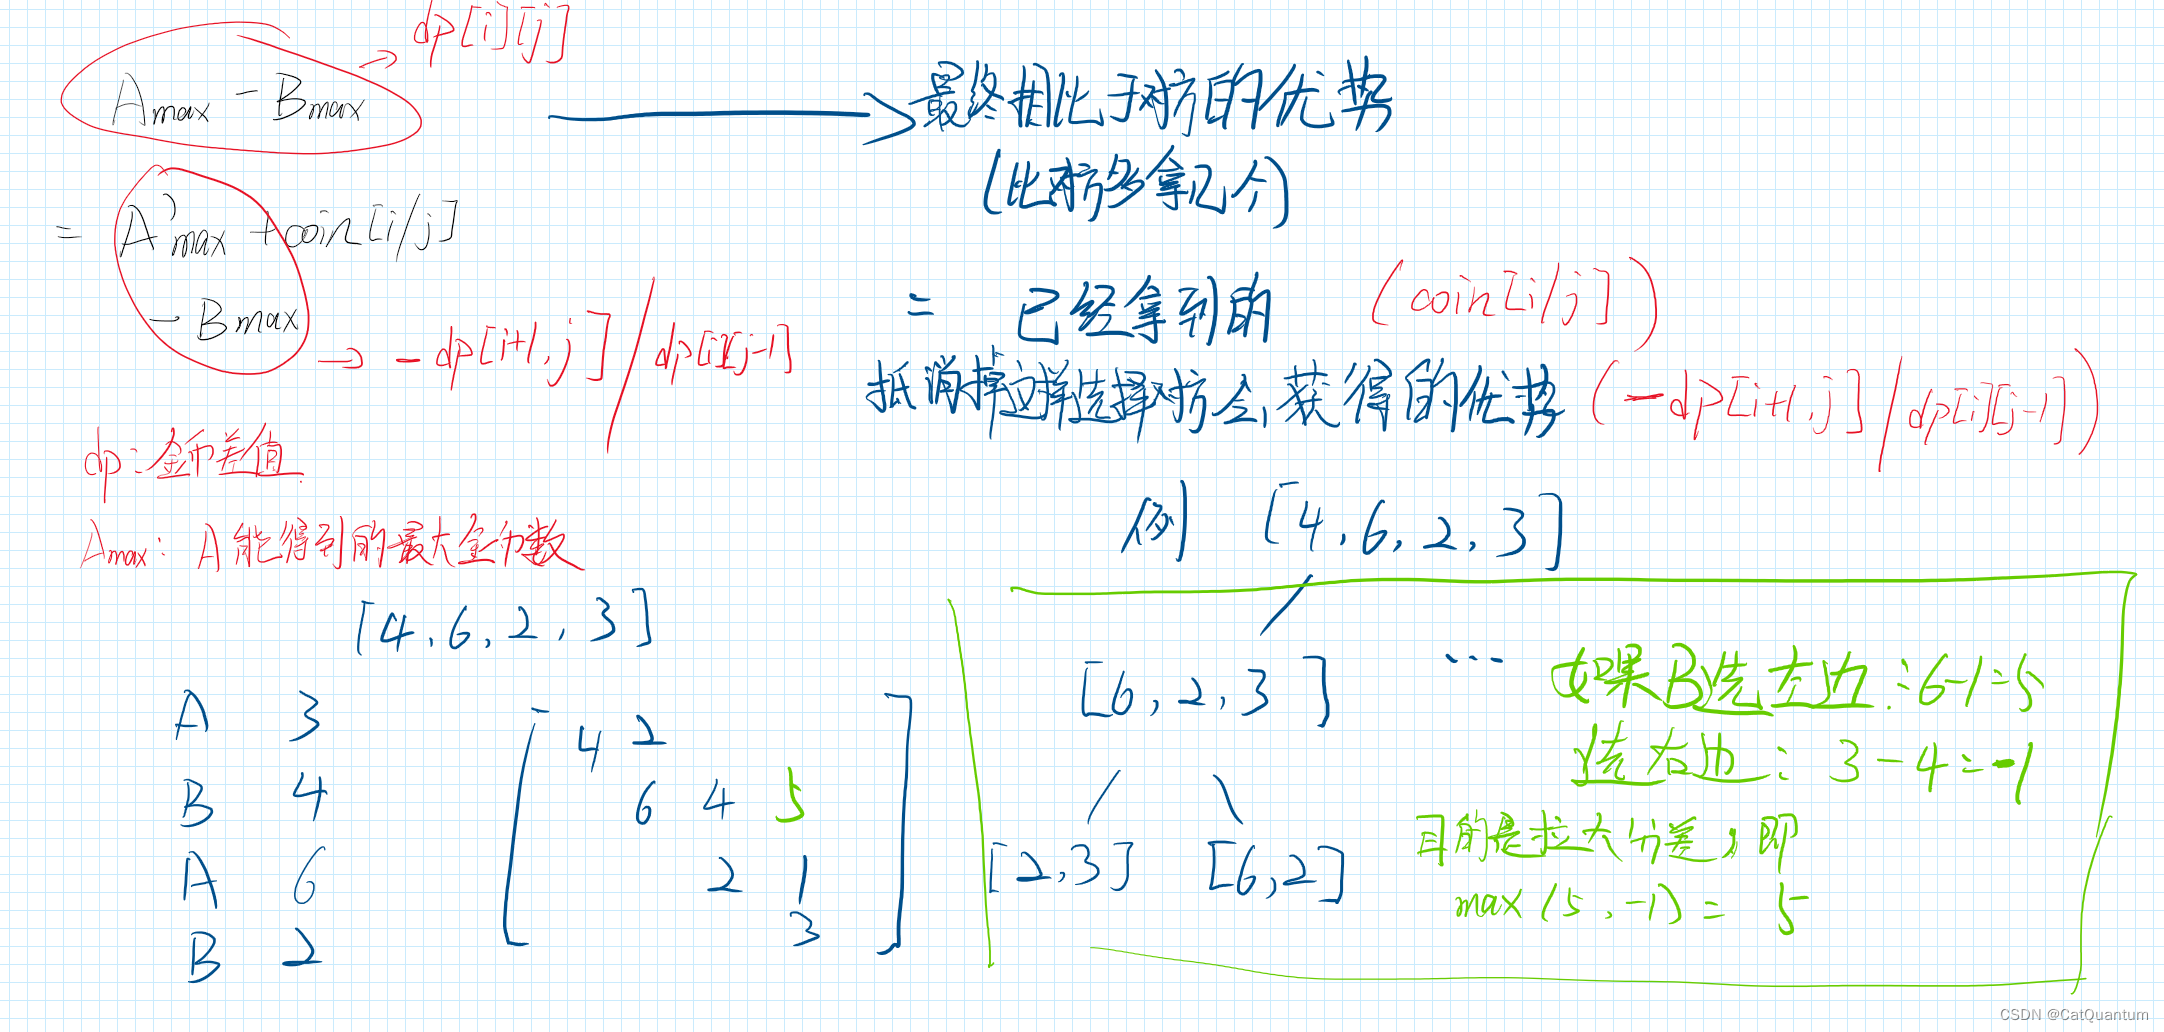 dp[i][j]
Amax - Bmax
最终相比于对方的优势
(比对方多拿几个)
= A'max + coin[i/j]
- Bmax
→ - dp[i+1, j] / dp[i][j-1]
= 已经拿到的 (coin[i/j])
抵消掉这样选择对方会获得的优势 (-dp[i+1, j] / dp[i][j-1])
dp:金币差值
Amax: A能得到的最大金币数
例 [4, 6, 2, 3]
[4, 6, 2, 3]
A 3
B 4
A 6
B 2
4 2
6 4 5
2 1
3
[6, 2, 3]
[2, 3] [6, 2]
...
如果B选左边:6-1=5
选右边: 3-4=-1
目的是拉大分差,即
max(5, -1) = 5
CSDN @CatQuantum